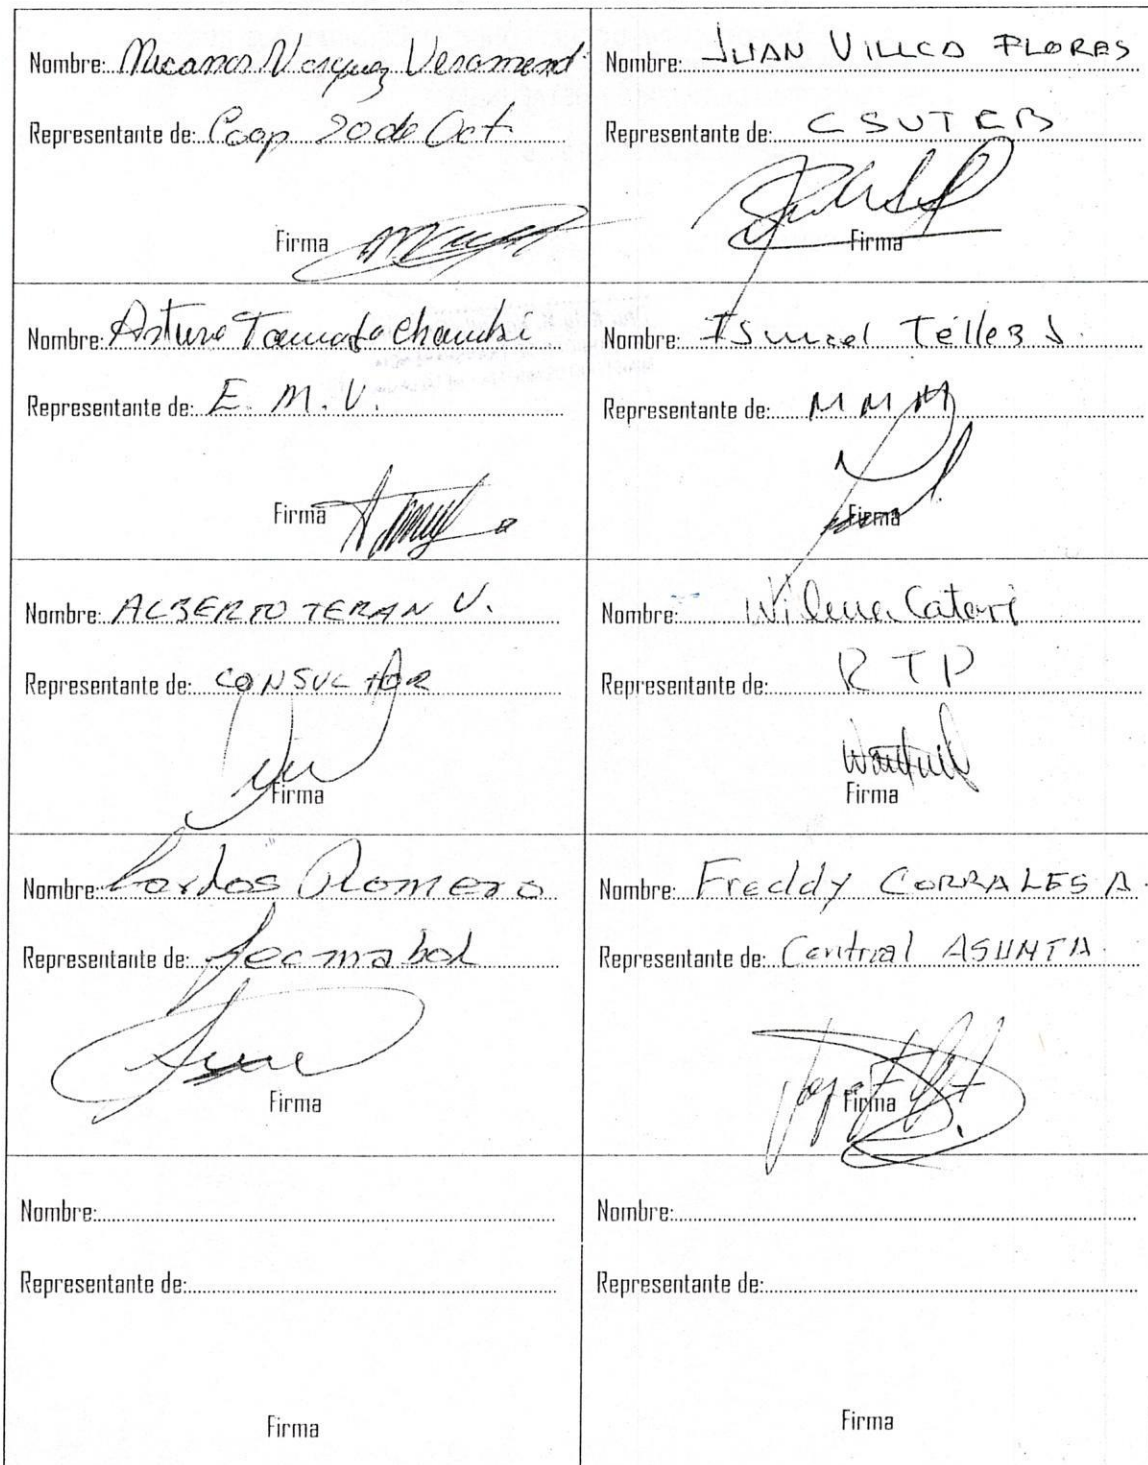 Nombre: Nicanor Vasquez Veramend
Representante de: Coop 20 de Oct
Firma
Nombre: JUAN VILLCA FLORES
Representante de: CSUTCB
Firma
Nombre: Arturo Tamata Chambi
Representante de: E. M. V.
Firma
Nombre: Ismael Téllez J.
Representante de: MMM
Firma
Nombre: ALBERTO TERAN V.
Representante de: CONSULTOR
Firma
Nombre: Wilma Catari
Representante de: RTP
Firma
Nombre: Carlos Romero
Representante de: Fecmabol
Firma
Nombre: Freddy CORRALES A.
Representante de: Central ASUNTA
Firma
Nombre:
Representante de:
Firma
Nombre:
Representante de:
Firma